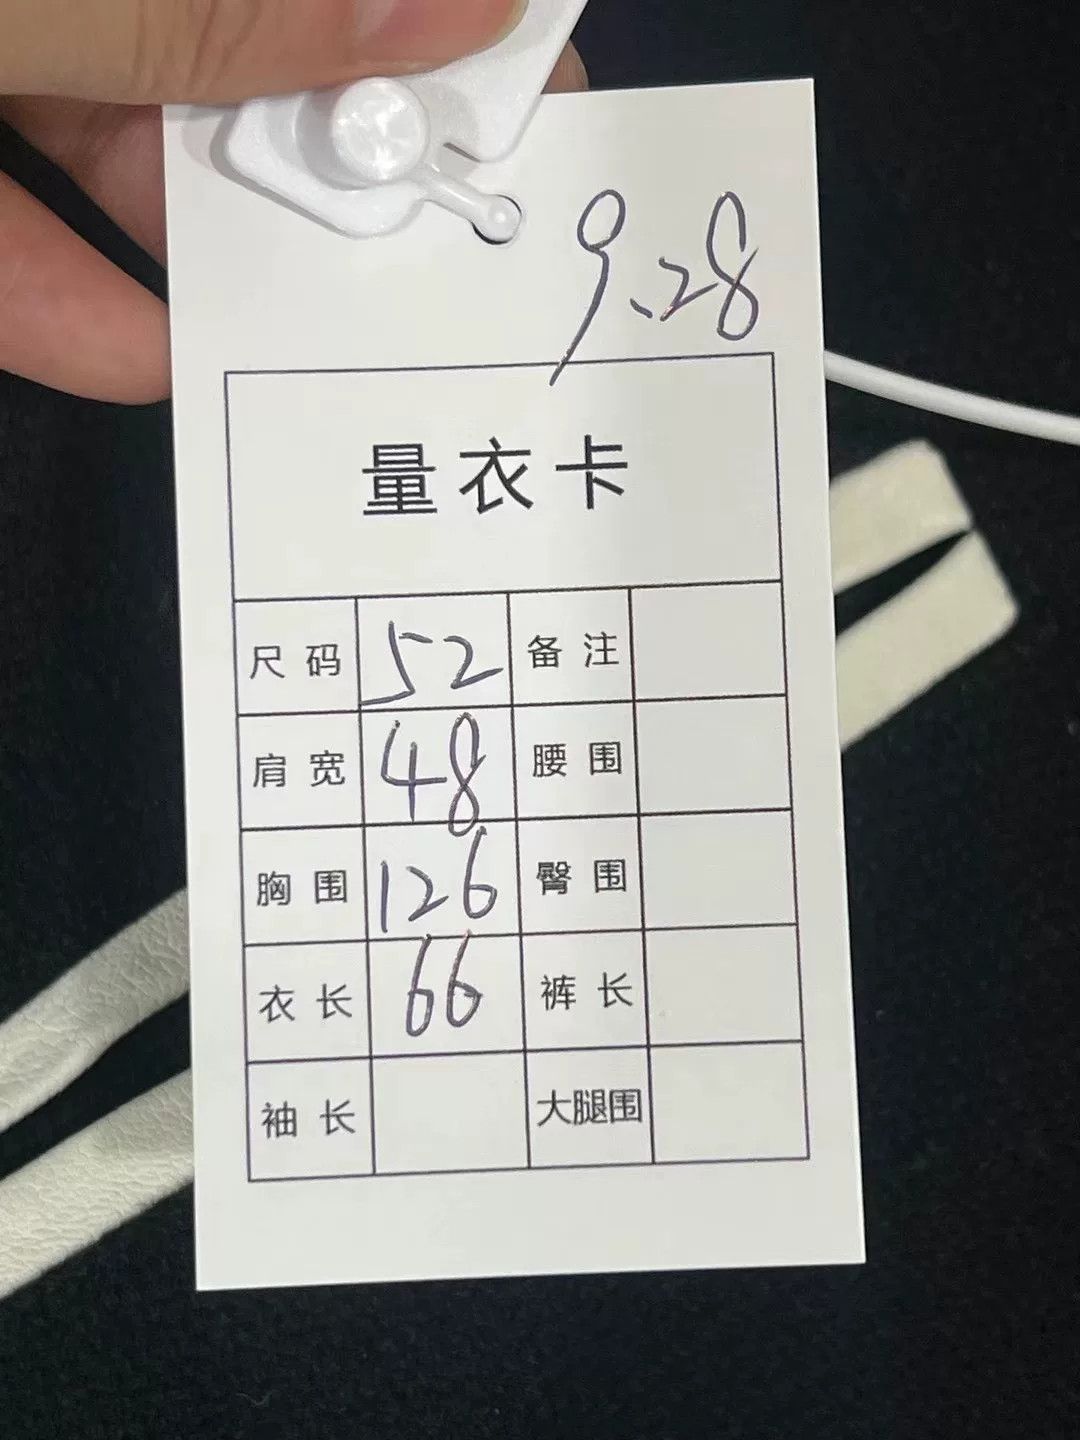 9.28
量衣卡
尺码 52 备注
肩宽 48 腰围
胸围 126 臀围
衣长 66 裤长
袖长 大腿围